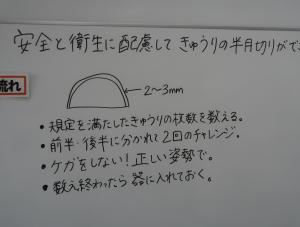 安全と衛生に配慮して きゅうりの半月切りがで
流れ
2〜3mm
・規定を満たしたきゅうりの枚数を数える。
・前半・後半に分かれて2回のチャレンジ。
・ケガをしない！正しい姿勢で。
・数え終わったら器に入れておく。